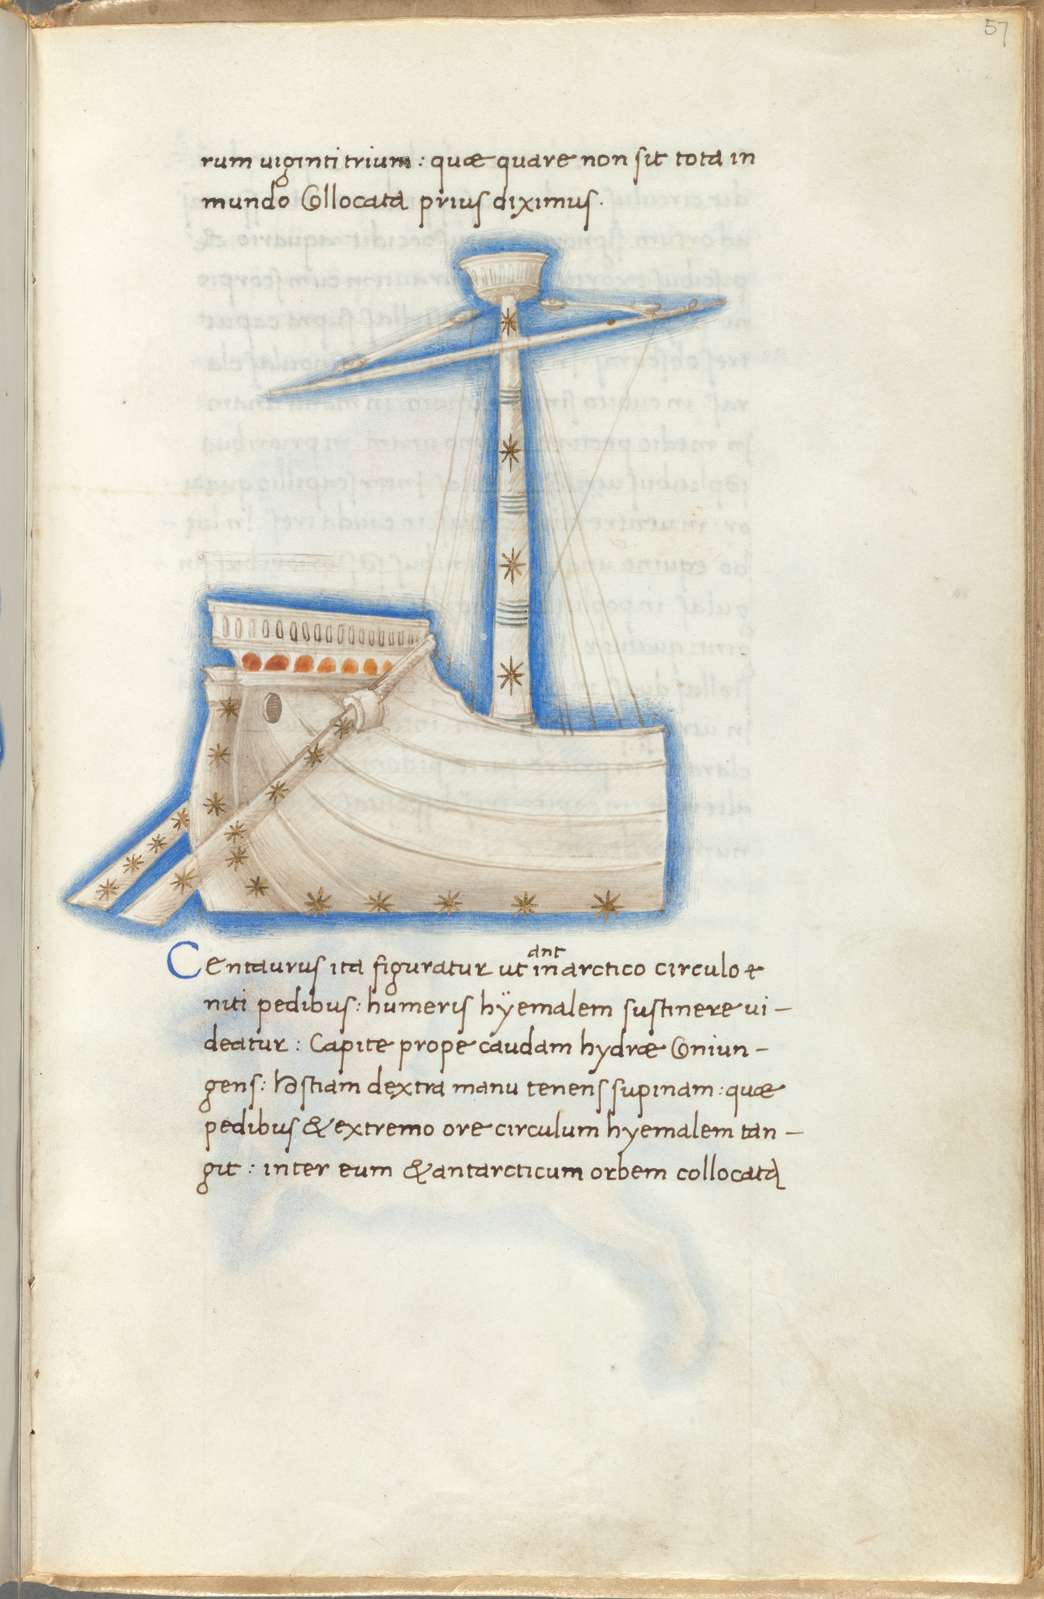 57
rum uiginti trium : quæ quare non sit tota in
mundo Collocata prius diximus.
Centaurus ita figuratur ut in
ant
arctico circulo &
niti pedibus : humeris hÿemalem sustinere ui–
deatur : Capite prope caudam hydræ Coniun–
gens : hostiam dextra manu tenens supinam : quæ
pedibus & extremo ore circulum hyemalem tan–
git : inter eum & antarcticum orbem collocata